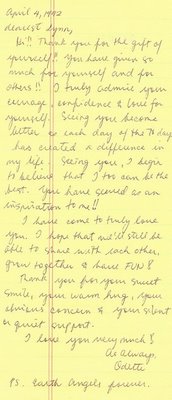 April 4, 1992
Dearest Lynn,
Hi!! Thank you for the gift of
yourself! You have given so
much for yourself and for
others!! I truly admire your
courage, confidence & love for
yourself. Seeing you become
better as each day of the 70 days
has created a difference in
my life. Seeing you, I begin
to believe that I too can be the
best. You have served as an
inspiration to me!!
I have come to truly love
you. I hope that we'll still be
able to share with each other,
grow together & have FUN!
Thank you for your sweet
smile, your warm hug, your
obvious concern & your silent
or quiet support.
I love you very much!
As Always,
Odette
P.S. Earth Angels forever.